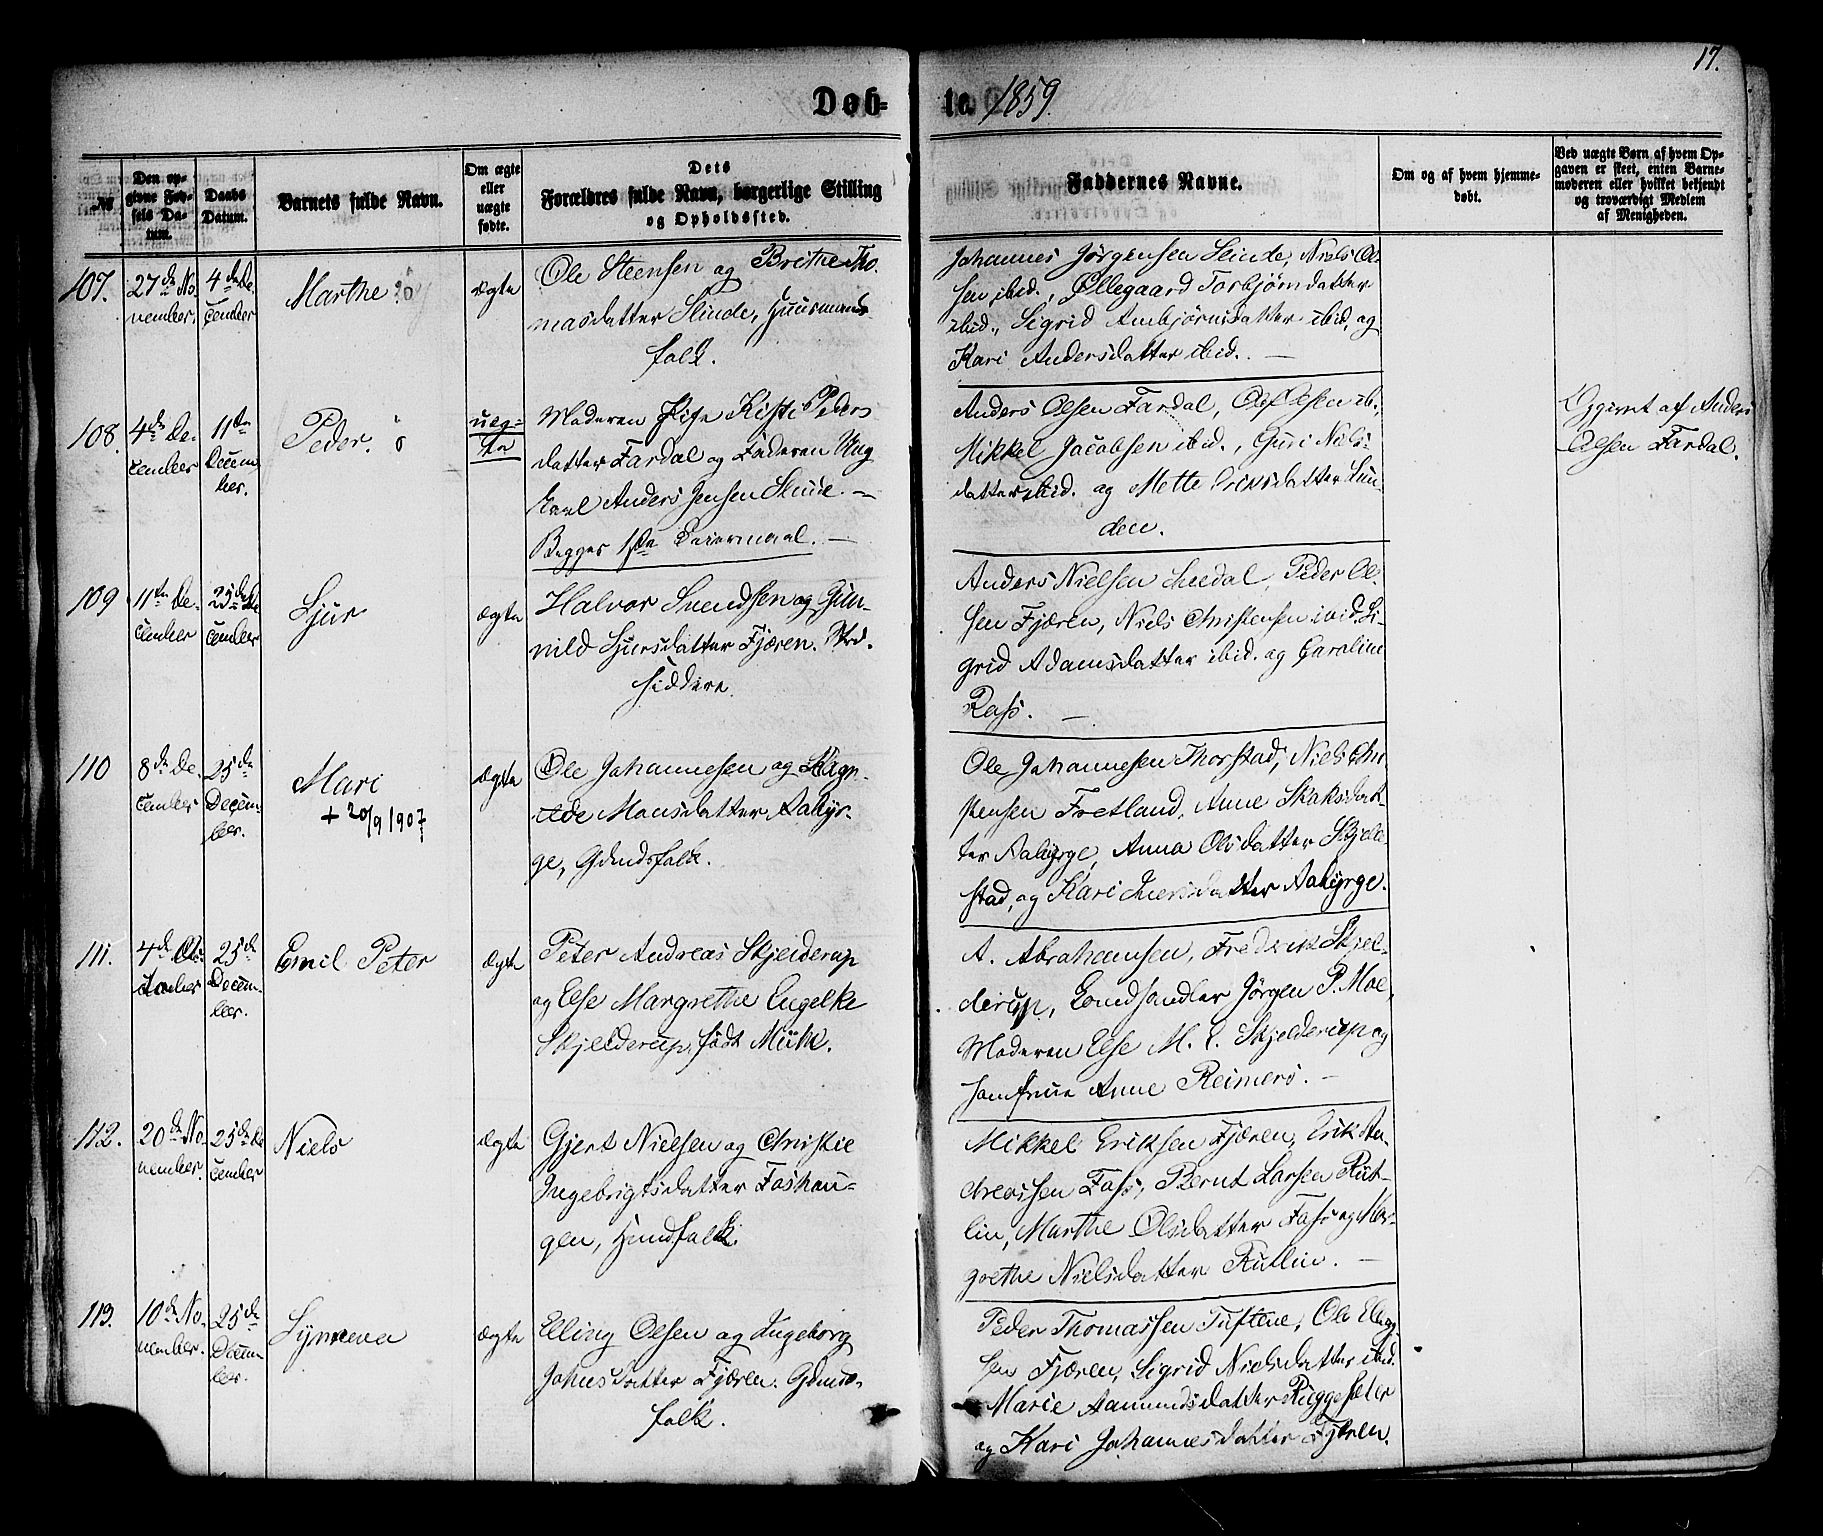 17.
Døb-
te 1859.
No
Den op-
givne Fød-
sels Da-
tum.
Daabs
Datum.
Barnets fulde Navn.
Om ægte
eller
uægte
fødte.
Dets
Forældres fulde Navn, borgerlige Stilling
og Opholdssted.
Faddernes Navne.
Om og af hvem hjemme-
døbt.
Ved uægte Børn af hvem Op-
gaven er skeet, enten Barne-
moderen eller hvilket bekjendt
og troværdigt Medlem
af Menigheden.
107.
27de No-
vember.
4de De-
cember
Marthe
ægte
Ole Steensen og Brithe Tho-
masdatter Slinde, Huusmands-
folk.
Johannes Jørgensen Slinde, Niels Ol-
sen ibid., Øllegaard Torbjørnsdatter
ibid., Sigrid Ambjørnsdatter ibid, og
Kari Andersdatter ibid. —
108.
4de De-
cember
11te
Decem-
ber.
Peder.
uæg-
te
Moderen Pige Kisti Peders
datter Fardal og Faderen Ung
Karl Anders Jensen Slinde. —
Begges 1ste Leiermaal. —
Anders Olsen Fardal, Ole Olsen ib.,
Mikkel Jacobsen ibid., Guri Niels-
datter ibid. og Mette Orensdatter Lun-
den.
Opgivet af Anders
Olsen Fardal.
109
11te De-
cember
25de De
cember
Sjur
ægte
Halvor Svendsen og Gun-
nild Sjursdatter Fjæren. Strd.
siddere.
Anders Nielsen Loedal, Peder Ol-
sen Fjæren, Niels Christensen ivid. Si-
grid Adamsdatter ibid. og Caroline
Rass. —
110
8de De-
cember
25de
Decem-
ber.
Mari
+ 20/9 1907
ægte
Ole Johannesen og Ragn-
ilde Monsdatter Aabyr-
ge, Gdmdsfolk.
Ole Johannesen Thorstad, Niels Chri
stensen Fretland, Anne Skaksdat-
ter Aabyrge, Anna Olsdatter Skjelle-
stad, og Kari Iversdatter Aabyrge.
111.
4de Oc-
tober
25de
Decem-
ber.
Emil Peter
ægte
Peter Andreas Skjelderup
og Else Margrethe Engelke
Skjelderup, født Münk.
A. Abrahamsen, Fredrik Skjel-
derup, Landhandler Jørgen P. Moe,
Moderen Else M. E. Skjelderup og
Jomfrue Anne Reimers. —
112.
20de No-
vember.
25de De
cember
Niels
ægte
Gjert Nielsen og Christie
Ingebrigtsdatter Foshau-
gen, Hmdsfolk.
Mikkel Eriksen Fjæren, Erik An-
dreassen Fass, Bernt Larsen Rut-
lin, Marthe Olsdatter Fass og Mar-
grethe Nielsdatter Rutlin. —
113.
10de No-
vember.
25de
Decem
ber.
Synneva
ægte
Elling Olsen og Ingeborg
Johnsdatter Fjæren. Gdmds-
folk.
Peder Thomassen Tuftene, Ole Elling-
sen Fjæren, Sigrid Nielsdatter ibid.
Marie Aamundsdatter Ruggeseter
og Kari Johannesdatter Fjæren.